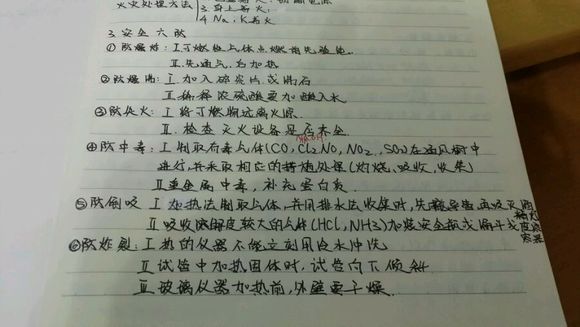 火灾处理方法
3.身上着火:
4 Na,K着火
3.安全六防
①防爆炸:Ⅰ可燃性气体点燃前先验纯.
Ⅱ.先通气,后加热
②防爆沸:Ⅰ加入碎瓷片或沸石
Ⅱ稀释浓硫酸要加酸入水
③防失火:Ⅰ将可燃物远离火源.
Ⅱ.检查灭火设备是否齐全.
④防中毒:Ⅰ制取有毒气体(CO,Cl2,NO,NO2,SO2)在通风橱中
进行,并采取相应的措施处理(灼烧,吸收,收集)
Ⅱ重金属中毒,补充蛋白质.
⑤防倒吸 Ⅰ加热法制取气体,并用排水法收集时,先撤导管,再熄灭酒
Ⅱ吸收溶解度较大的气体(HCl,NH3)加装安全瓶或漏斗或
⑥防炸裂:Ⅰ热的仪器不能立刻用冷水冲洗
Ⅱ试管中加热固体时,试管向下倾斜
Ⅲ玻璃仪器加热前,外壁要干燥.